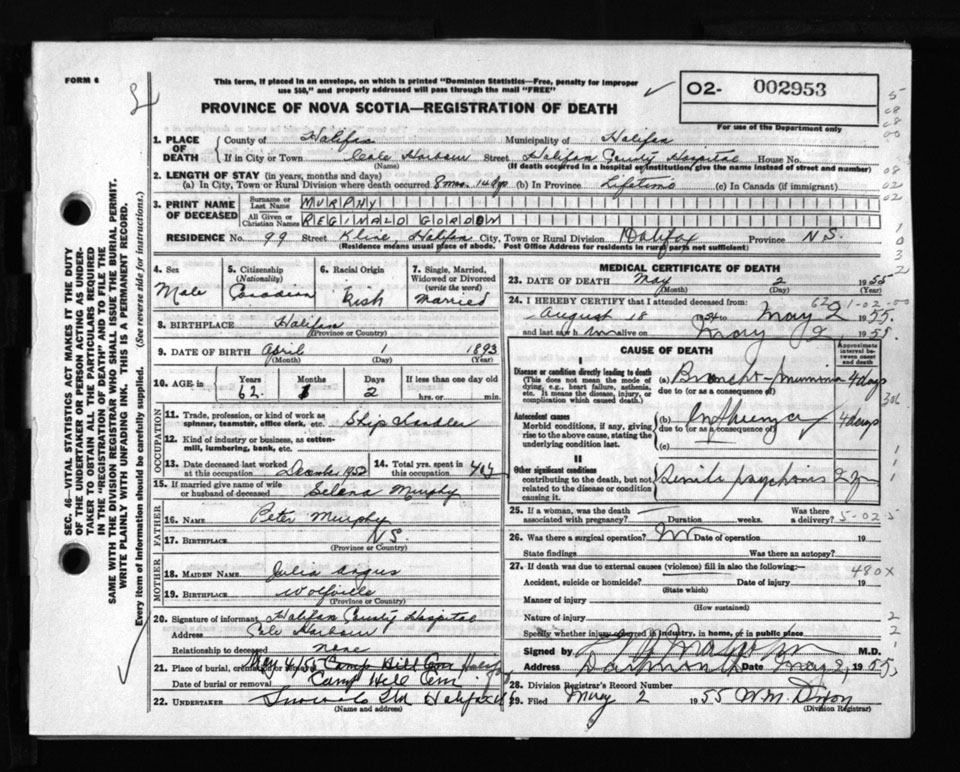 FORM 6
This form, if placed in an envelope, on which is printed "Dominion Statistics—Free, penalty for improper
use $50," and properly addressed will pass through the mail "FREE"
PROVINCE OF NOVA SCOTIA—REGISTRATION OF DEATH
O2- 002953
For use of the Department only
SEC. 46—VITAL STATISTICS ACT MAKES IT THE DUTY
OF THE UNDERTAKER OR PERSON ACTING AS UNDER-
TAKER TO OBTAIN ALL THE PARTICULARS REQUIRED
IN THE "REGISTRATION OF DEATH" AND TO FILE THE
SAME WITH THE DIVISION REGISTRAR WHO SHALL ISSUE THE BURIAL PERMIT.
WRITE PLAINLY WITH UNFADING INK. THIS IS A PERMANENT RECORD.
Every item of information should be carefully supplied. (See reverse side for instructions.)
1. PLACE OF DEATH County of Halifax Municipality of Halifax
If in City or Town Cole Harbour Street Halifax County Hospital House No.
(Name) (If death occurred in a hospital or institution, give the name instead of street and number)
2. LENGTH OF STAY (in years, months and days)
(a) In City, Town or Rural Division where death occurred 8 mos. 14 dys (b) In Province Lifetime (c) In Canada (if immigrant)
3. PRINT NAME OF DECEASED Surname or Last Name MURPHY
All Given or Christian Names REGINALD GORDON
RESIDENCE No. 99 Street Kline, Halifax City, Town or Rural Division Halifax Province N.S.
(Residence means usual place of abode. Post Office Address for residents in rural parts not sufficient)
4. Sex Male
5. Citizenship (Nationality) Canadian
6. Racial Origin Irish
7. Single, Married, Widowed or Divorced (write the word) Married
8. BIRTHPLACE Halifax
(Province or Country)
9. DATE OF BIRTH April 1 1893
(Month) (Day) (Year)
10. AGE in Years 62 Months 1 Days 2 If less than one day old hrs. or min.
OCCUPATION
11. Trade, profession, or kind of work as spinner, teamster, office clerk, etc.
12. Kind of industry or business, as cotton-mill, lumbering, bank, etc.
13. Date deceased last worked at this occupation December 1952 14. Total yrs. spent in this occupation 40 y
15. If married give name of wife or husband of deceased Selena Murphy
FATHER
16. NAME Peter Murphy
17. BIRTHPLACE N.S.
(Province or Country)
MOTHER
18. MAIDEN NAME Julia Angus
19. BIRTHPLACE Wolfville
(Province or Country)
20. Signature of informant Halifax County Hospital
Address Cole Harbour
Relationship to deceased None
21. Place of burial, cremation or removal Camp Hill Cem Halifax
May 4/55
Date of burial or removal Camp Hill Cem
22. UNDERTAKER Snow & Co Ltd Halifax
(Name and address)
MEDICAL CERTIFICATE OF DEATH
23. DATE OF DEATH May 2 1955
(Month) (Day) (Year)
24. I HEREBY CERTIFY that I attended deceased from
August 18 1954 to May 2 1955.
and last saw him alive on May 2 1955.
CAUSE OF DEATH
Approximate interval between onset and death
I
Disease or condition directly leading to death
(This does not mean the mode of dying, e.g., heart failure, asthenia, etc. It means the disease, injury, or complication which caused death.)
(a) Broncho-pneumonia 4 days
due to (or as a consequence of)
Antecedent causes
Morbid conditions, if any, giving rise to the above cause, stating the underlying condition last.
(b) Influenza 4 days
due to (or as a consequence of)
(c)
II
Other significant conditions
contributing to the death, but not related to the disease or condition causing it.
Senile psychosis 2 yr
25. If a woman, was the death associated with pregnancy? Duration weeks. Was there a delivery?
5-02-5
26. Was there a surgical operation? No Date of operation 19
State findings Was there an autopsy?
27. If death was due to external causes (violence) fill in also the following:—
480X
Accident, suicide or homicide? Date of injury 19
(State which)
Manner of injury
(How sustained)
Nature of injury
Specify whether injury occurred in industry, in home, or in public place
Signed by M.D.
Address Dartmouth Date May 2, 1955
28. Division Registrar's Record Number
29. Filed May 2 1955 W.M. Dixon
(Division Registrar)